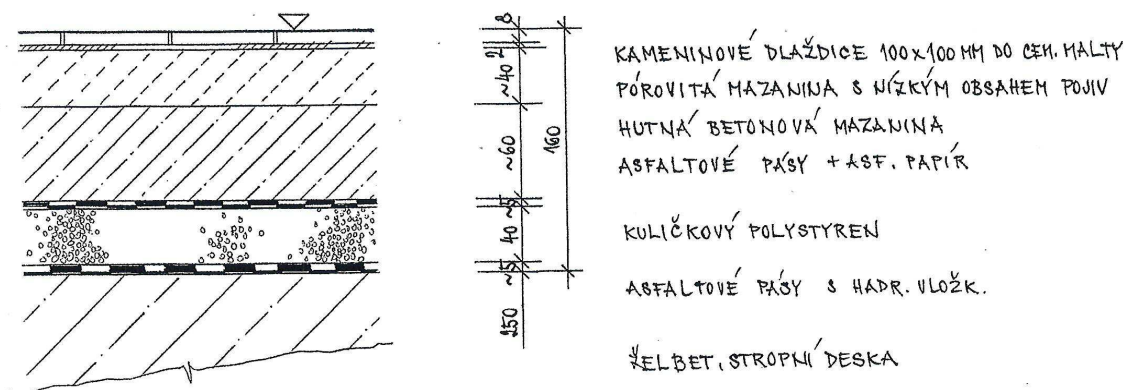 8
2
~40
~60
~5
40
~5
250
160
KAMENINOVÉ DLAŽDICE 100x100 MM DO CEM. MALTY
PÓROVITÁ MAZANINA S NÍZKÝM OBSAHEM POJIV
HUTNÁ BETONOVÁ MAZANINA
ASFALTOVÉ PÁSY + ASF. PAPÍR
KULIČKOVÝ POLYSTYREN
ASFALTOVÉ PÁSY S HADR. VLOŽK.
ŽELBET. STROPNÍ DESKA